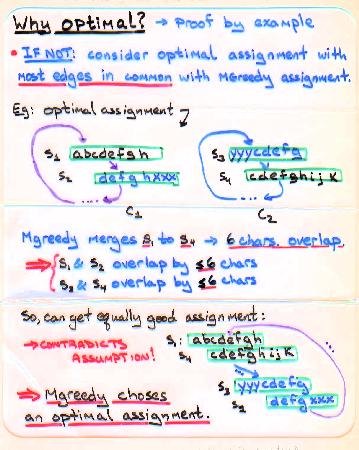 Why optimal? → proof by example
• IF NOT: consider optimal assignment with
most edges in common with Mgreedy assignment.
Eg: optimal assignment
S1 abcdefgh
S2 defghxxx
....
C1
S3 yyycdefg
S4 cdefghijk
....
C2
Mgreedy merges S1 to S4 → 6 chars. overlap.
⇒ { S1 & S2 overlap by ≤6 chars
S3 & S4 overlap by ≤6 chars
So, can get equally good assignment:
→ CONTRADICTS
ASSUMPTION!
S1: abcdefgh
S4 cdefghijk
...
...
S3 yyycdefg
S2 defgxxx
⇒ Mgreedy choses
an optimal assignment.